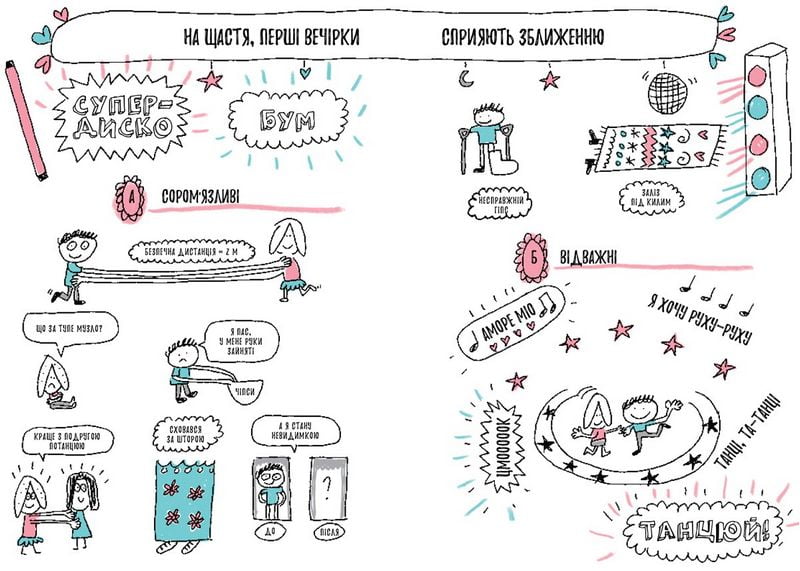 НА ЩАСТЯ, ПЕРШІ ВЕЧІРКИ СПРИЯЮТЬ ЗБЛИЖЕННЮ
СУПЕР-
ДИСКО
БУМ
А
СОРОМ'ЯЗЛИВІ
БЕЗПЕЧНА ДИСТАНЦІЯ = 2 М
ЩО ЗА ТУПЕ МУЗЛО?
Я ПАС,
У МЕНЕ РУКИ
ЗАЙНЯТІ
ЧІПСИ
КРАЩЕ З ПОДРУГОЮ
ПОТАНЦЮЮ
СХОВАВСЯ
ЗА ШТОРОЮ
А Я СТАНУ
НЕВИДИМКОЮ
?
ДО
ПІСЛЯ
НЕСПРАВЖНІЙ
ГІПС
ЗАЛІЗ
ПІД КИЛИМ
Б
ВІДВАЖНІ
АМОРЕ МІО
Я ХОЧУ РУХУ-РУХУ
ЦМОООООК
ТАНЦІ, ТА-ТАНЦІ
ТАНЦЮЙ!